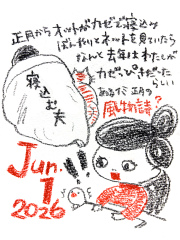 正月からオットがカゼで寝込み
ぼんやりとネットを見ていたら
なんと去年はわたしが
カゼっぴきだった
らしい
あるイミ正月の
風物詩?
寝込む夫
Jan.
1
2026